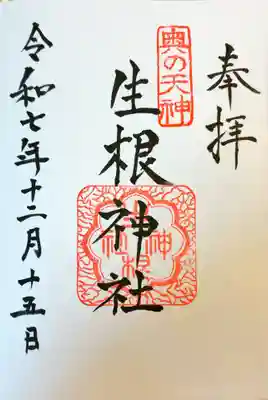 奉拝
奥の天神
生根神社
令和七年十二月十五日